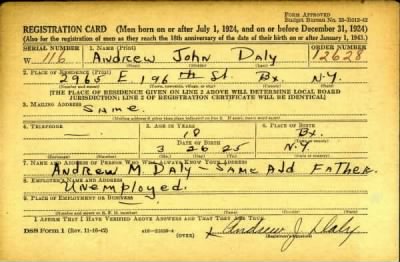 FORM APPROVED
Budget Bureau No. 33-R012-42
REGISTRATION CARD (Men born on or after July 1, 1924, and on or before December 31, 1924)
(Also for the registration of men as they reach the 18th anniversary of the date of their birth on or after January 1, 1943.)
SERIAL NUMBER 1. NAME (Print) ORDER NUMBER
W 116 Andrew John Daly 12628
(First) (Middle) (Last)
2. PLACE OF RESIDENCE (Print)
2965 E. 196th St. Bx. N.Y.
[THE PLACE OF RESIDENCE GIVEN ON LINE 2 ABOVE WILL DETERMINE LOCAL BOARD
JURISDICTION; LINE 2 OF REGISTRATION CERTIFICATE WILL BE IDENTICAL]
3. MAILING ADDRESS
Same.
4. TELEPHONE 5. AGE IN YEARS 6. PLACE OF BIRTH
18 Bx.
DATE OF BIRTH
3 26 25 N.Y.
7. NAME AND ADDRESS OF PERSON WHO WILL ALWAYS KNOW YOUR ADDRESS
Andrew M Daly - Same Add Father.
8. EMPLOYER'S NAME AND ADDRESS
Unemployed.
9. PLACE OF EMPLOYMENT OR BUSINESS
I AFFIRM THAT I HAVE VERIFIED ABOVE ANSWERS AND THAT THEY ARE TRUE.
DSS Form 1 (Rev. 11-16-42) (OVER) Andrew J. Daly